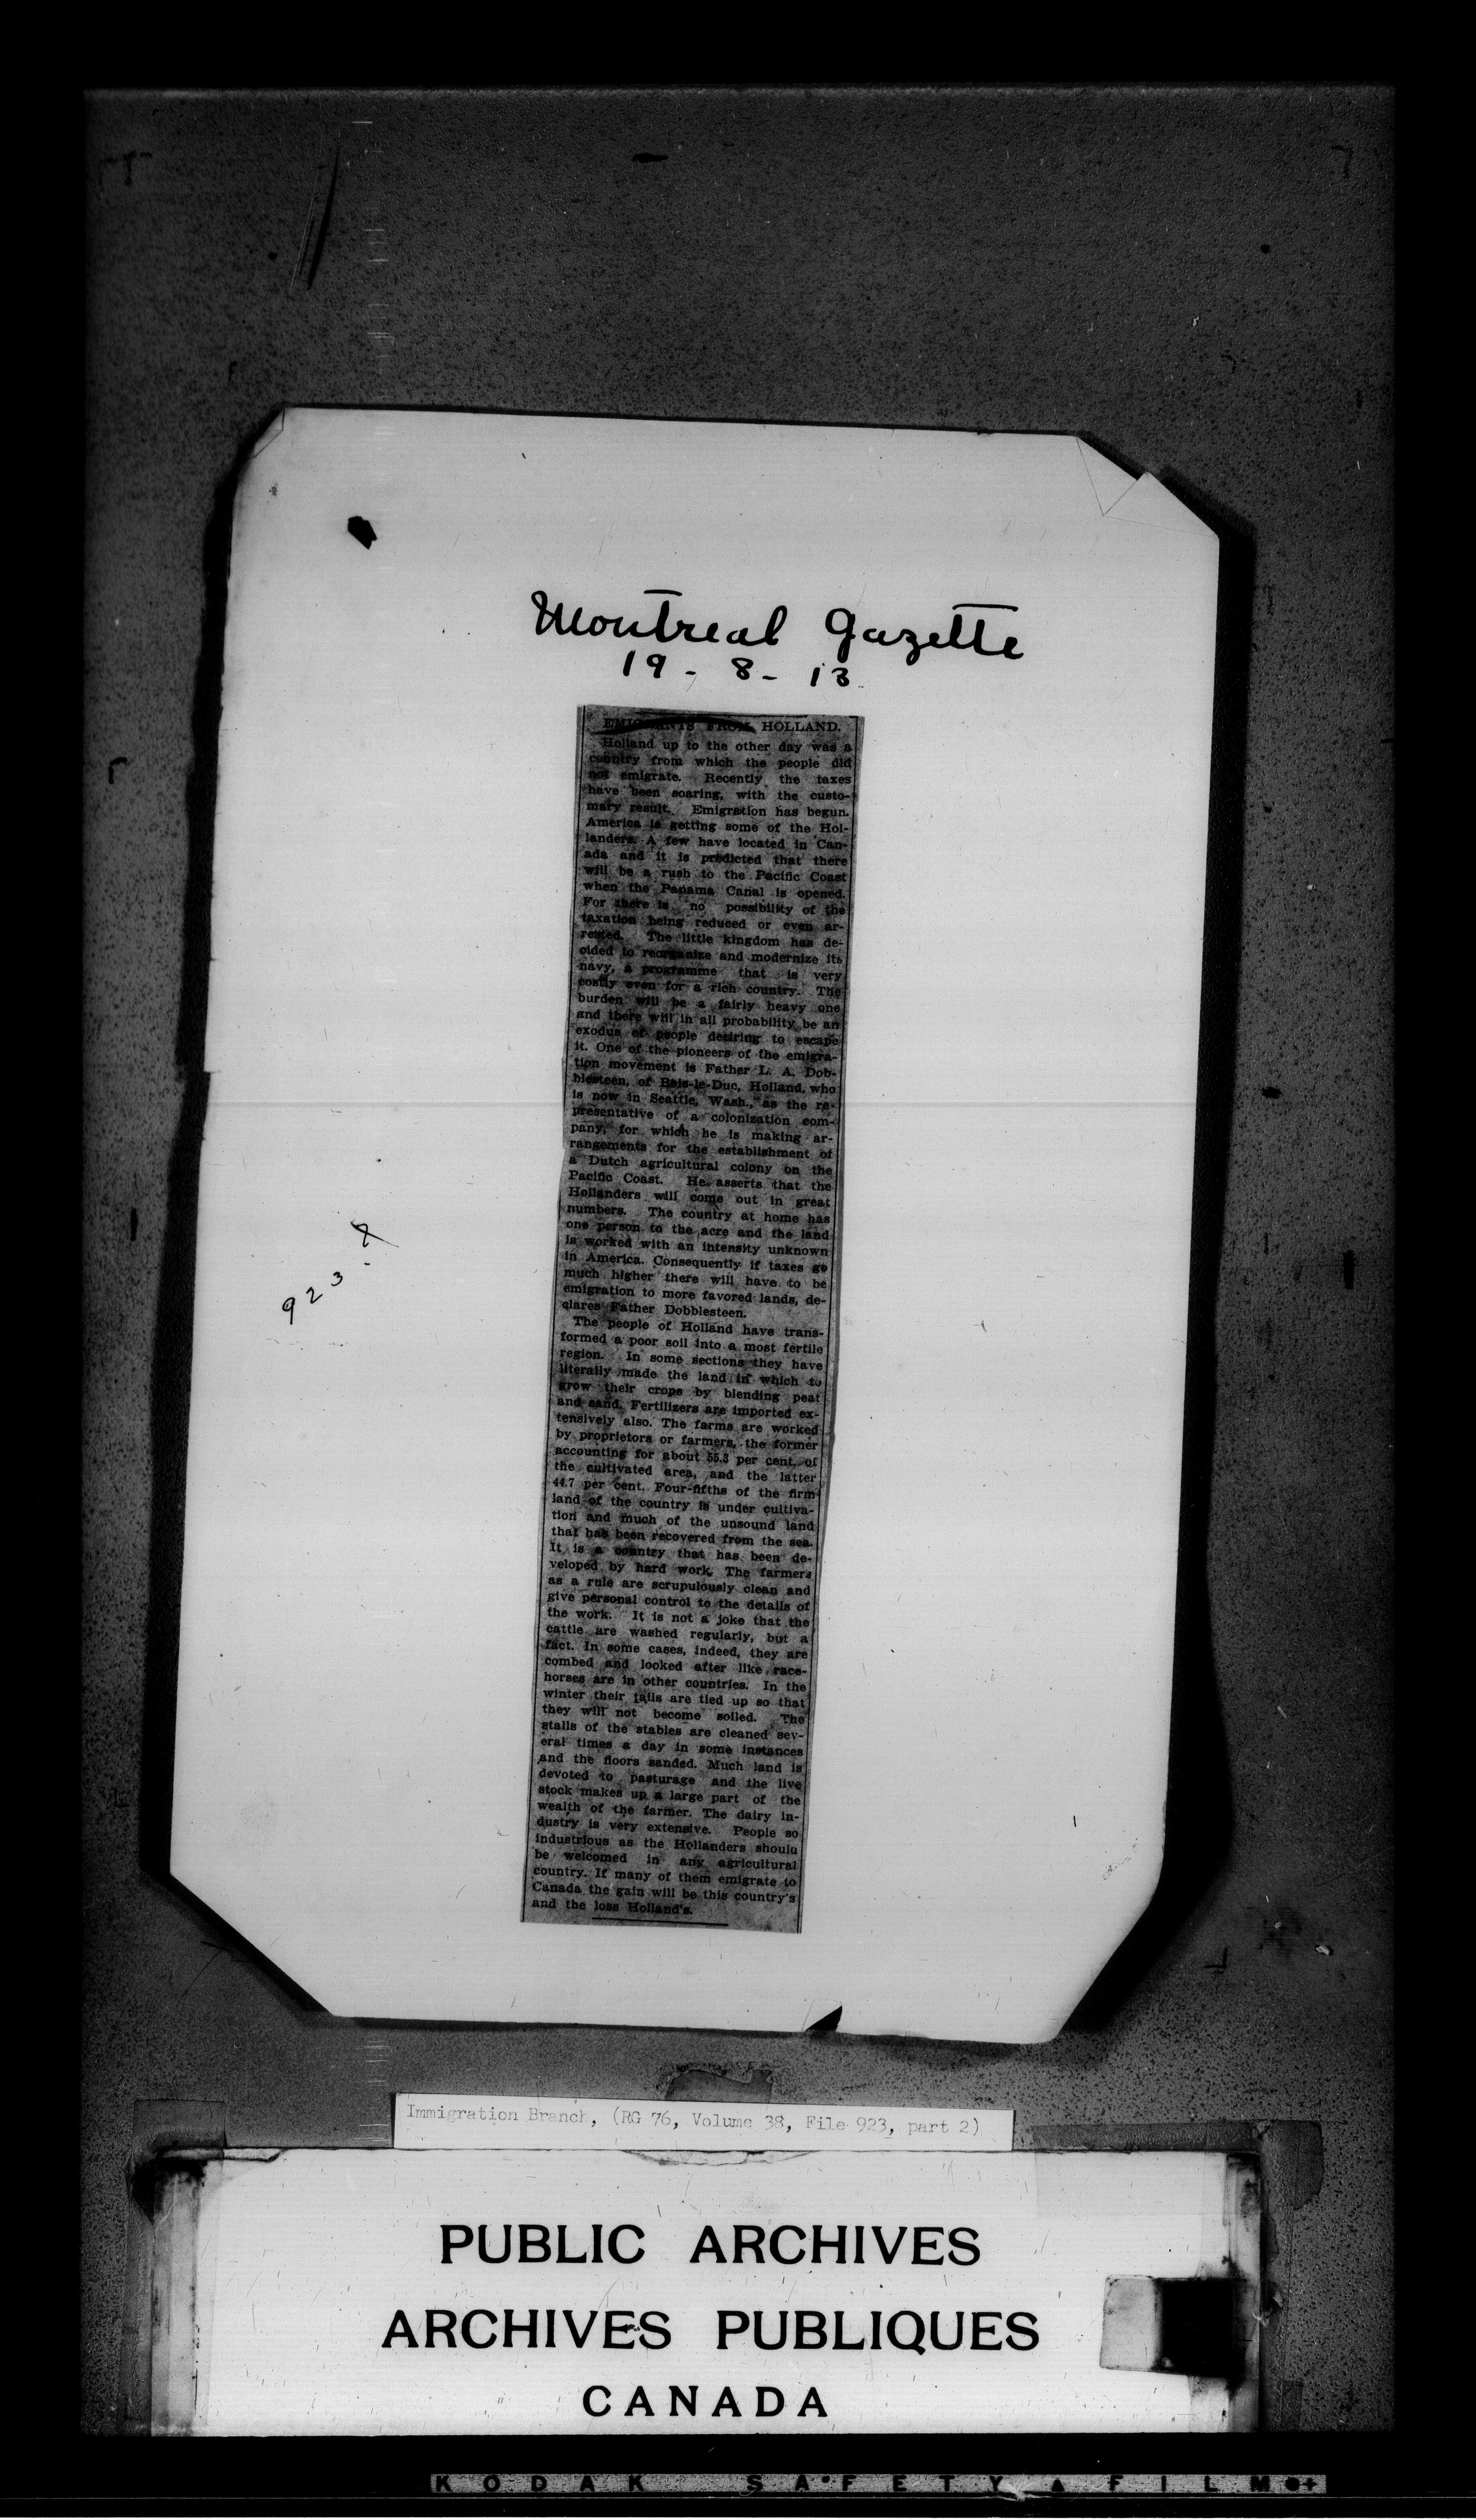 Montreal Gazette
19 - 8 - 13
EMIGRANTS FROM HOLLAND.
Holland up to the other day was a
country from which the people did
not emigrate. Recently the taxes
have been soaring, with the custo-
mary result. Emigration has begun.
America is getting some of the Hol-
landers. A few have located in Can-
ada and it is predicted that there
will be a rush to the Pacific Coast
when the Panama Canal is opened.
For there is no possibility of the
taxation being reduced or even ar-
rested. The little kingdom has de-
cided to reorganize and modernize its
navy, a programme that is very
costly even for a rich country. The
burden will be a fairly heavy one
and there will in all probability be an
exodus of people desiring to escape
it. One of the pioneers of the emigra-
tion movement is Father L. A. Dob-
blesteen, of Bois-le-Duc, Holland, who
is now in Seattle, Wash., as the re-
presentative of a colonization com-
pany, for which he is making ar-
rangements for the establishment of
a Dutch agricultural colony on the
Pacific Coast. He asserts that the
Hollanders will come out in great
numbers. The country at home has
one person to the acre and the land
is worked with an intensity unknown
in America. Consequently if taxes go
much higher there will have to be
emigration to more favored lands, de-
clares Father Dobblesteen.
The people of Holland have trans-
formed a poor soil into a most fertile
region. In some sections they have
literally made the land in which to
grow their crops by blending peat
and sand. Fertilizers are imported ex-
tensively also. The farms are worked
by proprietors or farmers, the former
accounting for about 55.3 per cent. of
the cultivated area, and the latter
44.7 per cent. Four-fifths of the firm
land of the country is under cultiva-
tion and much of the unsound land
that has been recovered from the sea.
It is a country that has been de-
veloped by hard work. The farmers
as a rule are scrupulously clean and
give personal control to the details of
the work. It is not a joke that the
cattle are washed regularly, but a
fact. In some cases, indeed, they are
combed and looked after like race-
horses are in other countries. In the
winter their tails are tied up so that
they will not become soiled. The
stalls of the stables are cleaned sev-
eral times a day in some instances
and the floors sanded. Much land is
devoted to pasturage and the live
stock makes up a large part of the
wealth of the farmer. The dairy in-
dustry is very extensive. People so
industrious as the Hollanders should
be welcomed in any agricultural
country. If many of them emigrate to
Canada the gain will be this country's
and the loss Holland's.
923
Immigration Branch, (RG 76, Volume 38, File 923, part 2)
PUBLIC ARCHIVES
ARCHIVES PUBLIQUES
CANADA
KODAK SAFETY FILM